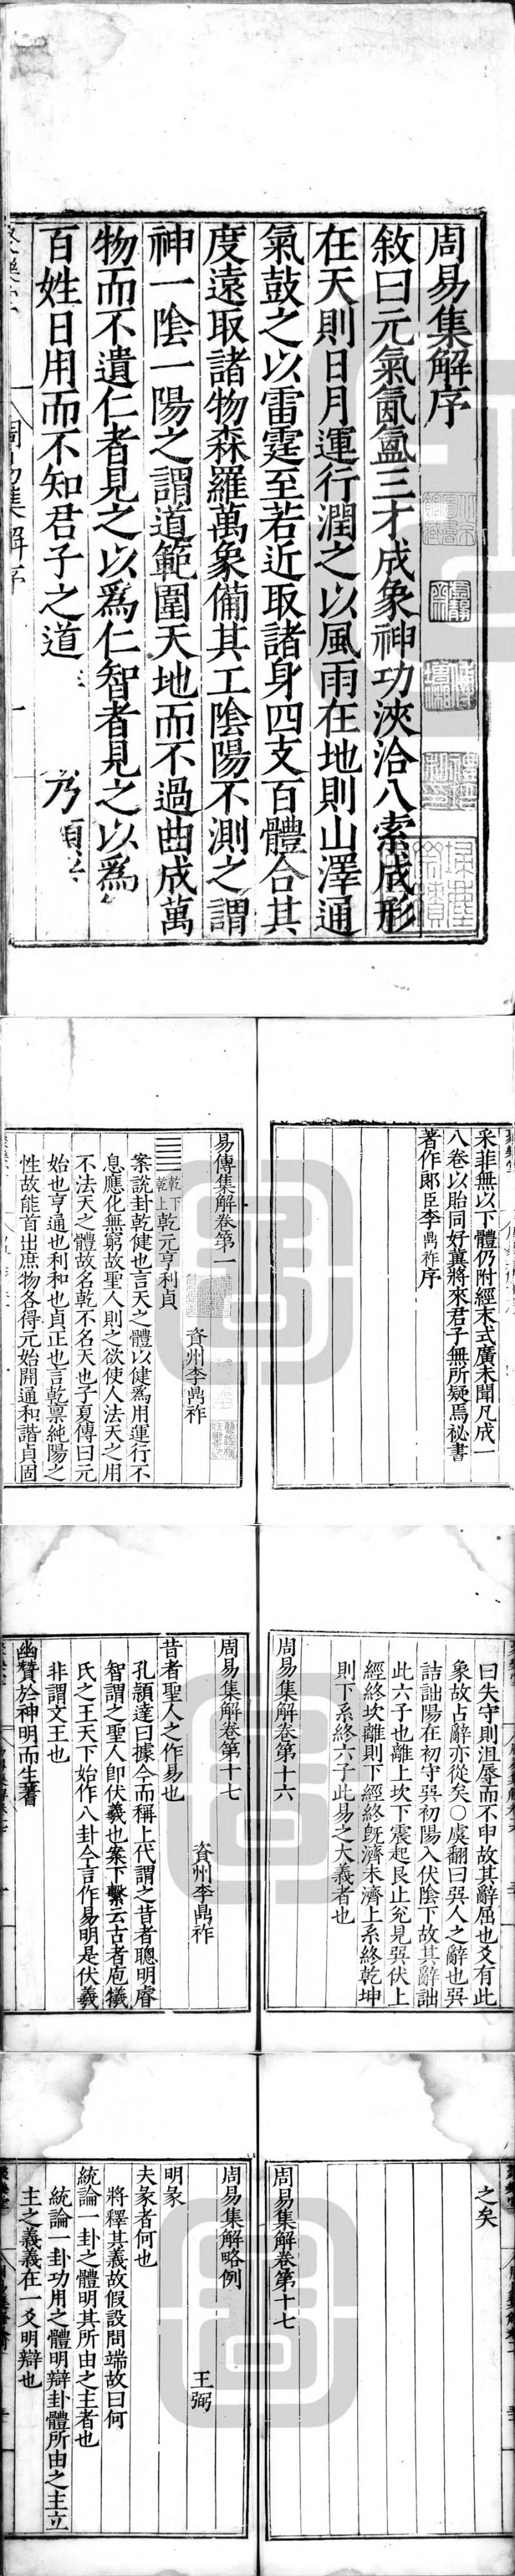 周易集解序
敘曰元氣氤氳三才成象神功浹洽八索成形
在天則日月運行潤之以風雨在地則山澤通
氣鼓之以雷霆至若近取諸身四支百體合其
度遠取諸物森羅萬象備其工陰陽不測之謂
神一陰一陽之謂道範圍天地而不過曲成萬
物而不遺仁者見之以爲仁智者見之以爲
百姓日用而不知君子之道
周易集解序 一
采菲無以下體仍附經末式廣未聞凡成一
八卷以貽同好冀將來君子無所疑焉祕書
著作郎臣李鼎祚序
易傳集解卷第一
資州李鼎祚
乾下乾上乾元亨利貞
案說卦乾健也言天之體以健爲用運行不
息應化無窮故聖人則之欲使人法天之用
不法天之體故名乾不名天也子夏傳曰元
始也亨通也利和也貞正也言乾稟純陽之
性故能首出庶物各得元始開通和諧貞固
曰失守則沮辱而不申故其辭屈也爻有此
象故占辭亦從矣○虞翻曰巽人之辭也巽
詰詘陽在初守巽初陽入伏陰下故其辭詘
此六子也離上坎下震起艮止兌見巽伏上
經終坎離則下經終旣濟未濟上系終乾坤
則下系終六子此易之大義者也
周易集解卷第十六
周易集解卷第十七
資州李鼎祚
昔者聖人之作易也
孔穎達曰據今而稱上代謂之昔者聰明睿
智謂之聖人卽伏羲也案下繫云古者庖犧
氏之王天下始作八卦今言作易明是伏羲
非謂文王也
幽贊於神明而生蓍
之矣
周易集解卷第十七
周易集解略例
王弼
明彖
夫彖者何也
將釋其義故假設問端故曰何
統論一卦之體明其所由之主者也
統論一卦功用之體明辯卦體所由之主立
主之義義在一爻明辯也